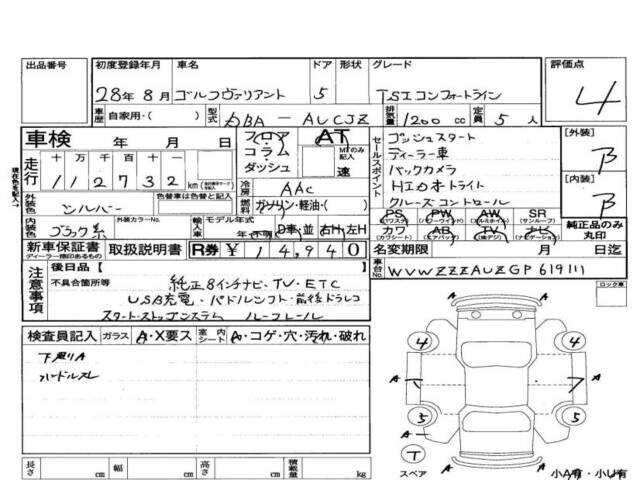 出品番号 初度登録年月 車名 ドア 形状 グレード 評価点
28年8月 ゴルフヴァリアント 5 TSIコンフォートライン 4
車歴 自家用・( ) 型式 DBA-AUCJZ 排気量 1200 cc 定員 5人
車検 年 月 日 フロア コラム・ダッシュ AT MTのみ記入 速
走行 十 万 千 百 十 一
112732 km
冷房 AAC
外装色 シルバー 色替車は色替と記入 燃料 ガソリン・軽油・( )
内装色 ブラック系 外装カラーNo. 輸入車 モデル年式 年・不明 D車・並 右H・左H
セールスポイント
プッシュスタート
ディーラー車
バックカメラ
HIDオートライト
クルーズコントロール
PS (パワステ) PW (パワーウィンド) AW (アルミホイル) SR (サンルーフ)
カワ (カワシート) AB (エアバック) TV (TV・デジ) ナビ (ナビゲーション)
[外装] B
[内装] B
純正品のみ丸印
新車保証書 ディーラー捺印のあるもの 取扱説明書 R券 ¥14,940 名変期限 月 日迄
車台No. WVWZZZAUZGP619111
注意事項 後日品〔 〕
不具合箇所等 純正8インチナビ・TV・ETC
USB充電・パドルシフト・前後ドラレコ
スタートストップシステム ルーフレール
ロック車
検査員記入 ガラス A・X要ス 室内シート A・コゲ・穴・汚れ・破れ
下廻りA
ハンドルスレ
A
4 4
A A A
5 5
T
スペア A 小A有・小U有
長さ cm 幅 cm 高さ cm 積載量 kg